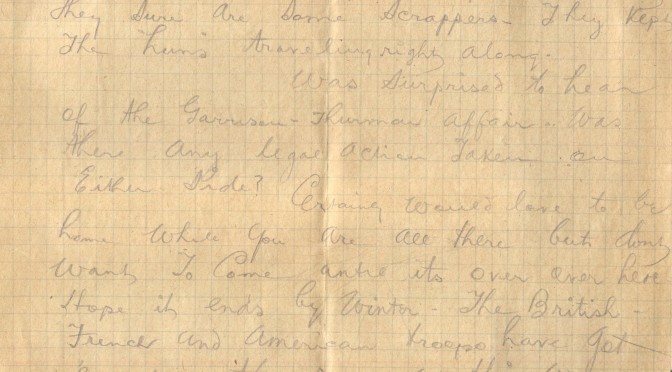 they sure are some scrappers - They kep
The huns traveling right along.
Was surprised to hear
of the Garrison - Thurman affair. Was
there any legal action Taken on
Either Side?
Certainly would love to be
home while you are all there but dont
want To Come until its over over here
Hope it ends by Winter - The British -
French and American troops have got